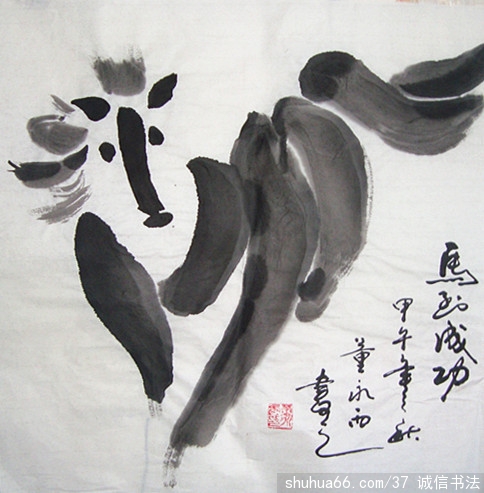 馬到成功
甲午年之秋
董永西
書之
shuhua66.com/37 诚信书法